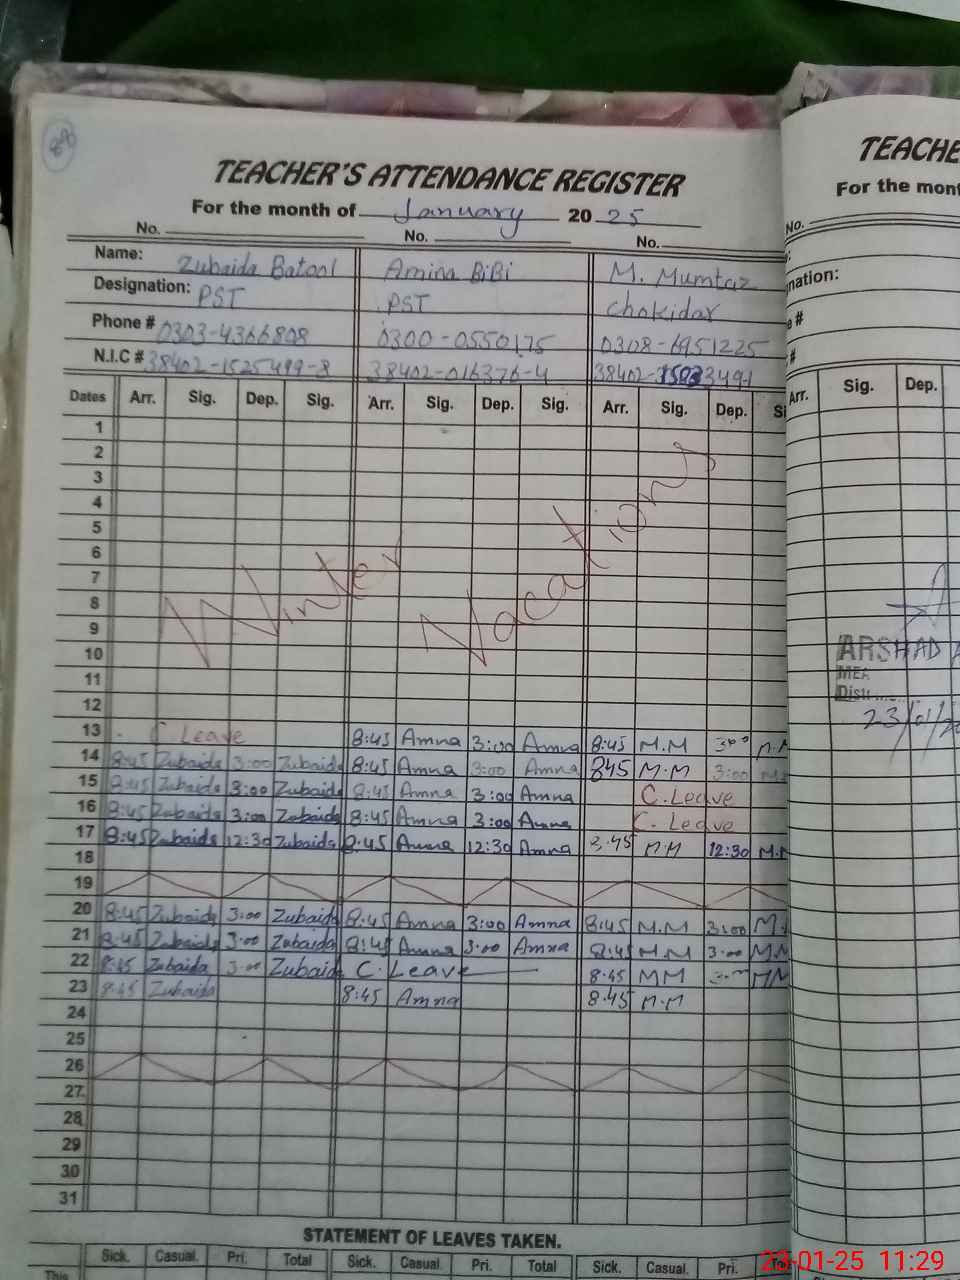 TEACHER'S ATTENDANCE REGISTER
For the month of January 20 25
No. No. No.
Name: Zubaida Batool Amina BiBi M. Mumtaz
Designation: PST PST Chokidar
Phone # 0303-4366808 0300-0550175 0308-6951225
N.I.C # 38402-1525499-8 38402-016376-4 38402-
Dates Arr. Sig. Dep. Sig. Arr. Sig. Dep. Sig. Arr. Sig. Dep. Si
1
2
3
4
5
6
7
8
9
10
11
12
Winter Vacations
13 Leave 8:45 Amna 3:00 Amna 8:45 M.M 3:00 M.M
14 8:45 Zubaida 3:00 Zubaida 8:45 Amna 3:00 Amna 845 M.M 3:00
15 8:45 Zubaida 3:00 Zubaida 8:45 Amna 3:00 Amna C.Leave
16 8:45 Zubaida 3:00 Zubaida 8:45 Amna 3:00 Amna C. Leave
17 8:45 Zubaida 12:30 Zubaida 8:45 Amna 12:30 Amna 8.45 M.M 12:30 M.M
18
19
20 8:45 Zubaida 3:00 Zubaida 8:45 Amna 3:00 Amna 8:45 M.M 3:00
21 8:45 Zubaida 3:00 Zubaida 8:45 Amna 3:00 Amna 8:45 M.M 3:00
22 8:45 Zubaida 3:00 Zubaida C.Leave 8:45 MM
23 8:45 Zubaida 8:45 Amna 8:45 M.M
24
25
26
27
28
29
30
31
STATEMENT OF LEAVES TAKEN.
Sick. Casual. Pri. Total Sick. Casual. Pri. Total Sick. Casual. Pri.
This
TEACHE
For the mon
No.
nation:
e #
#
Arr. Sig. Dep.
ARSHAD
MEA
Distt
23/01/20
23-01-25 11:29